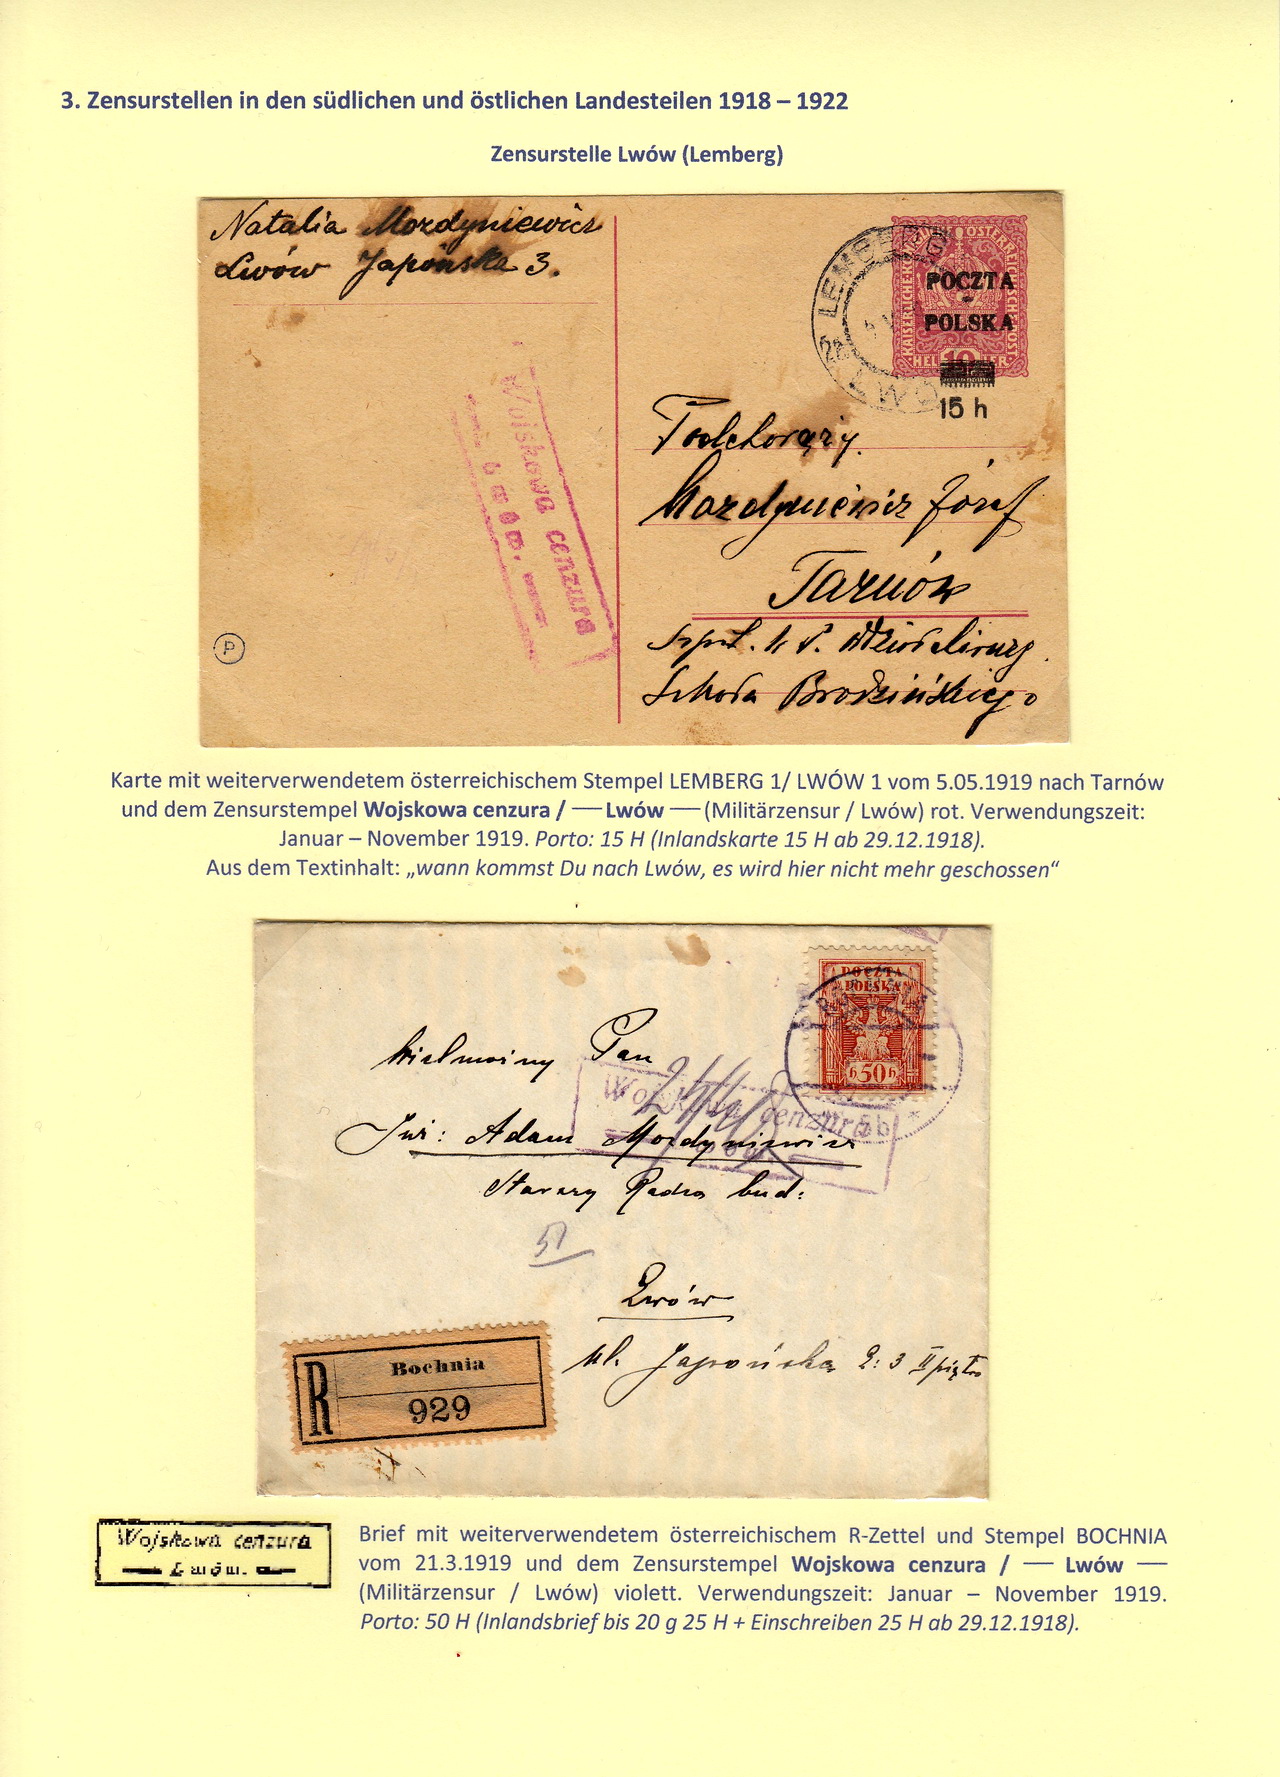 3. Zensurstellen in den südlichen und östlichen Landesteilen 1918 – 1922
Zensurstelle Lwów (Lemberg)
Natalia Mordyniewicz
Lwów Japońska 3.
LEMBERG
2a
LWÓ
KAISERLICHE K
ÖSTERREICHISCHE POST
POCZTA
POLSKA
HELLER
10
15 h
Wojskowa cenzura
Lwów.
Podchorąży
Mordyniewicz Józef
Tarnów
Szkoła Brodzińskiego
P
Karte mit weiterverwendetem österreichischem Stempel LEMBERG 1/ LWÓW 1 vom 5.05.1919 nach Tarnów
und dem Zensurstempel Wojskowa cenzura / — Lwów — (Militärzensur / Lwów) rot. Verwendungszeit:
Januar – November 1919. Porto: 15 H (Inlandskarte 15 H ab 29.12.1918).
Aus dem Textinhalt: „wann kommst Du nach Lwów, es wird hier nicht mehr geschossen“
POCZTA
POLSKA
h 50 h
Wielmożny Pan
Wojskowa cenzura
Inż: Adam Mordyniewicz
Starszy Radca bud:
51
Lwów
ul. Japońska L: 3 II piętro
R
Bochnia
929
Wojskowa cenzura
— Lwów. —
Brief mit weiterverwendetem österreichischem R-Zettel und Stempel BOCHNIA
vom 21.3.1919 und dem Zensurstempel Wojskowa cenzura / — Lwów —
(Militärzensur / Lwów) violett. Verwendungszeit: Januar – November 1919.
Porto: 50 H (Inlandsbrief bis 20 g 25 H + Einschreiben 25 H ab 29.12.1918).